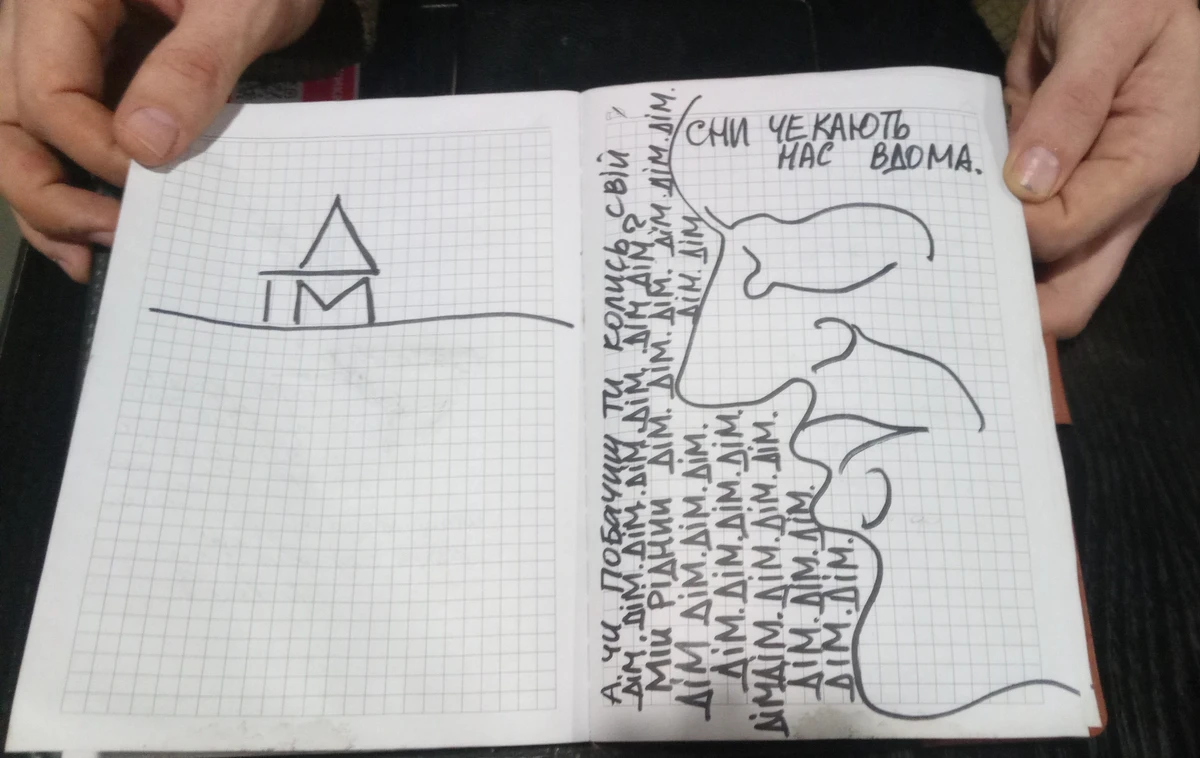 ДІМ
СНИ ЧЕКАЮТЬ
НАС ВДОМА.
А ЧИ ПОБАЧИШ ТИ КОЛИСЬ СВІЙ
ДІМ.ДІМ.ДІМ.ДІМ.ДІМ.ДІМ.ДІМ ДІМ?
МІЙ РІДНИЙ ДІМ. ДІМ. ДІМ. ДІМ.ДІМ.ДІМ.
ДІМ ДІМ.ДІМ.ДІМ. ДІМ.ДІМ
ДІМ.ДІМ.ДІМ.ДІМ.
ДІМДІМ.ДІМ.ДІМ.ДІМ.
ДІМ.ДІМ.ДІМ.
ДІМ.ДІМ.